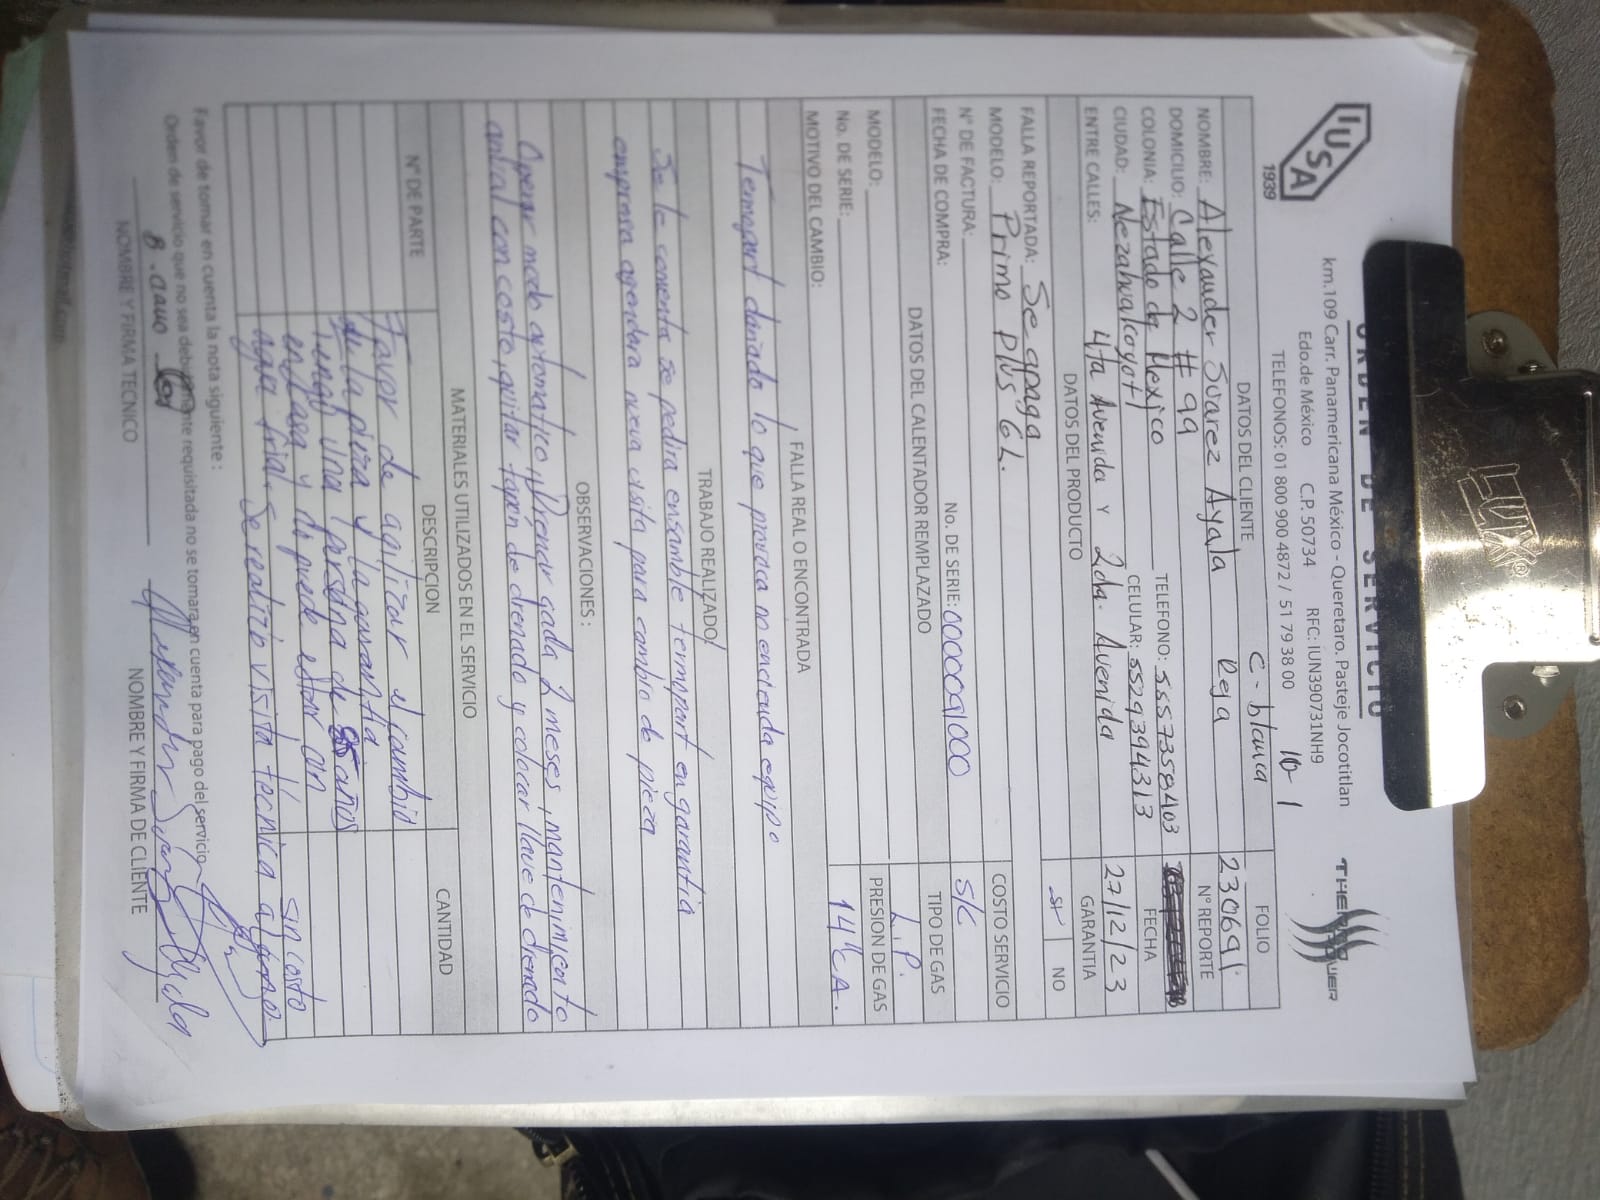 IUSA
1939
ORDEN DE SERVICIO
km.109 Carr. Panamericana México - Queretaro. Pasteje Jocotitlan
Edo.de México C.P. 50734 RFC: IUN390731NH9
TELEFONOS: 01 800 900 4872 / 51 79 38 00
10-1
C-blanca
Reja
DATOS DEL CLIENTE
FOLIO
NOMBRE: Alexander Suarez Ayala
230691
DOMICILIO: Calle 2 # 99
N° REPORTE
COLONIA: Estado de Mexico TELEFONO: 5557358403
FECHA
CIUDAD: Nezahualcoyotl CELULAR: 5529394313
27/12/23
ENTRE CALLES: 4ta Avenida Y 2da. Avenida
GARANTIA
DATOS DEL PRODUCTO
SI NO
FALLA REPORTADA: Se apaga
MODELO: Primo Plus 6 L.
COSTO SERVICIO
N° DE FACTURA: No. DE SERIE: 0000091000
S/C
FECHA DE COMPRA:
TIPO DE GAS
DATOS DEL CALENTADOR REMPLAZADO
L.P.
MODELO:
PRESION DE GAS
No. DE SERIE:
MOTIVO DEL CAMBIO:
FALLA REAL O ENCONTRADA
Temopart dañado lo que provoca no encienda equipo
TRABAJO REALIZADO
Se le comenta se pedira ensamble temropart en garantia
empresa agendara nueva visita para cambio de pieza
OBSERVACIONES :
Operar modo automatico, Drenar cada 2 meses, mantenimiento
anual con costo, quitar tapón de drenado y colocar llave de drenado
MATERIALES UTILIZADOS EN EL SERVICIO
N° DE PARTE DESCRIPCION CANTIDAD
Favor de agilizar el cambio
de la pieza y la garantia
Tengo una persona de años
en casa y no puede estar con sin costo
agua fria. Se realizo visita técnica
Favor de tomar en cuenta la nota siguiente :
Orden de servicio que no sea debidamente requisitada no se tomara en cuenta para pago del servicio
NOMBRE Y FIRMA TECNICO
NOMBRE Y FIRMA DE CLIENTE
LUX®